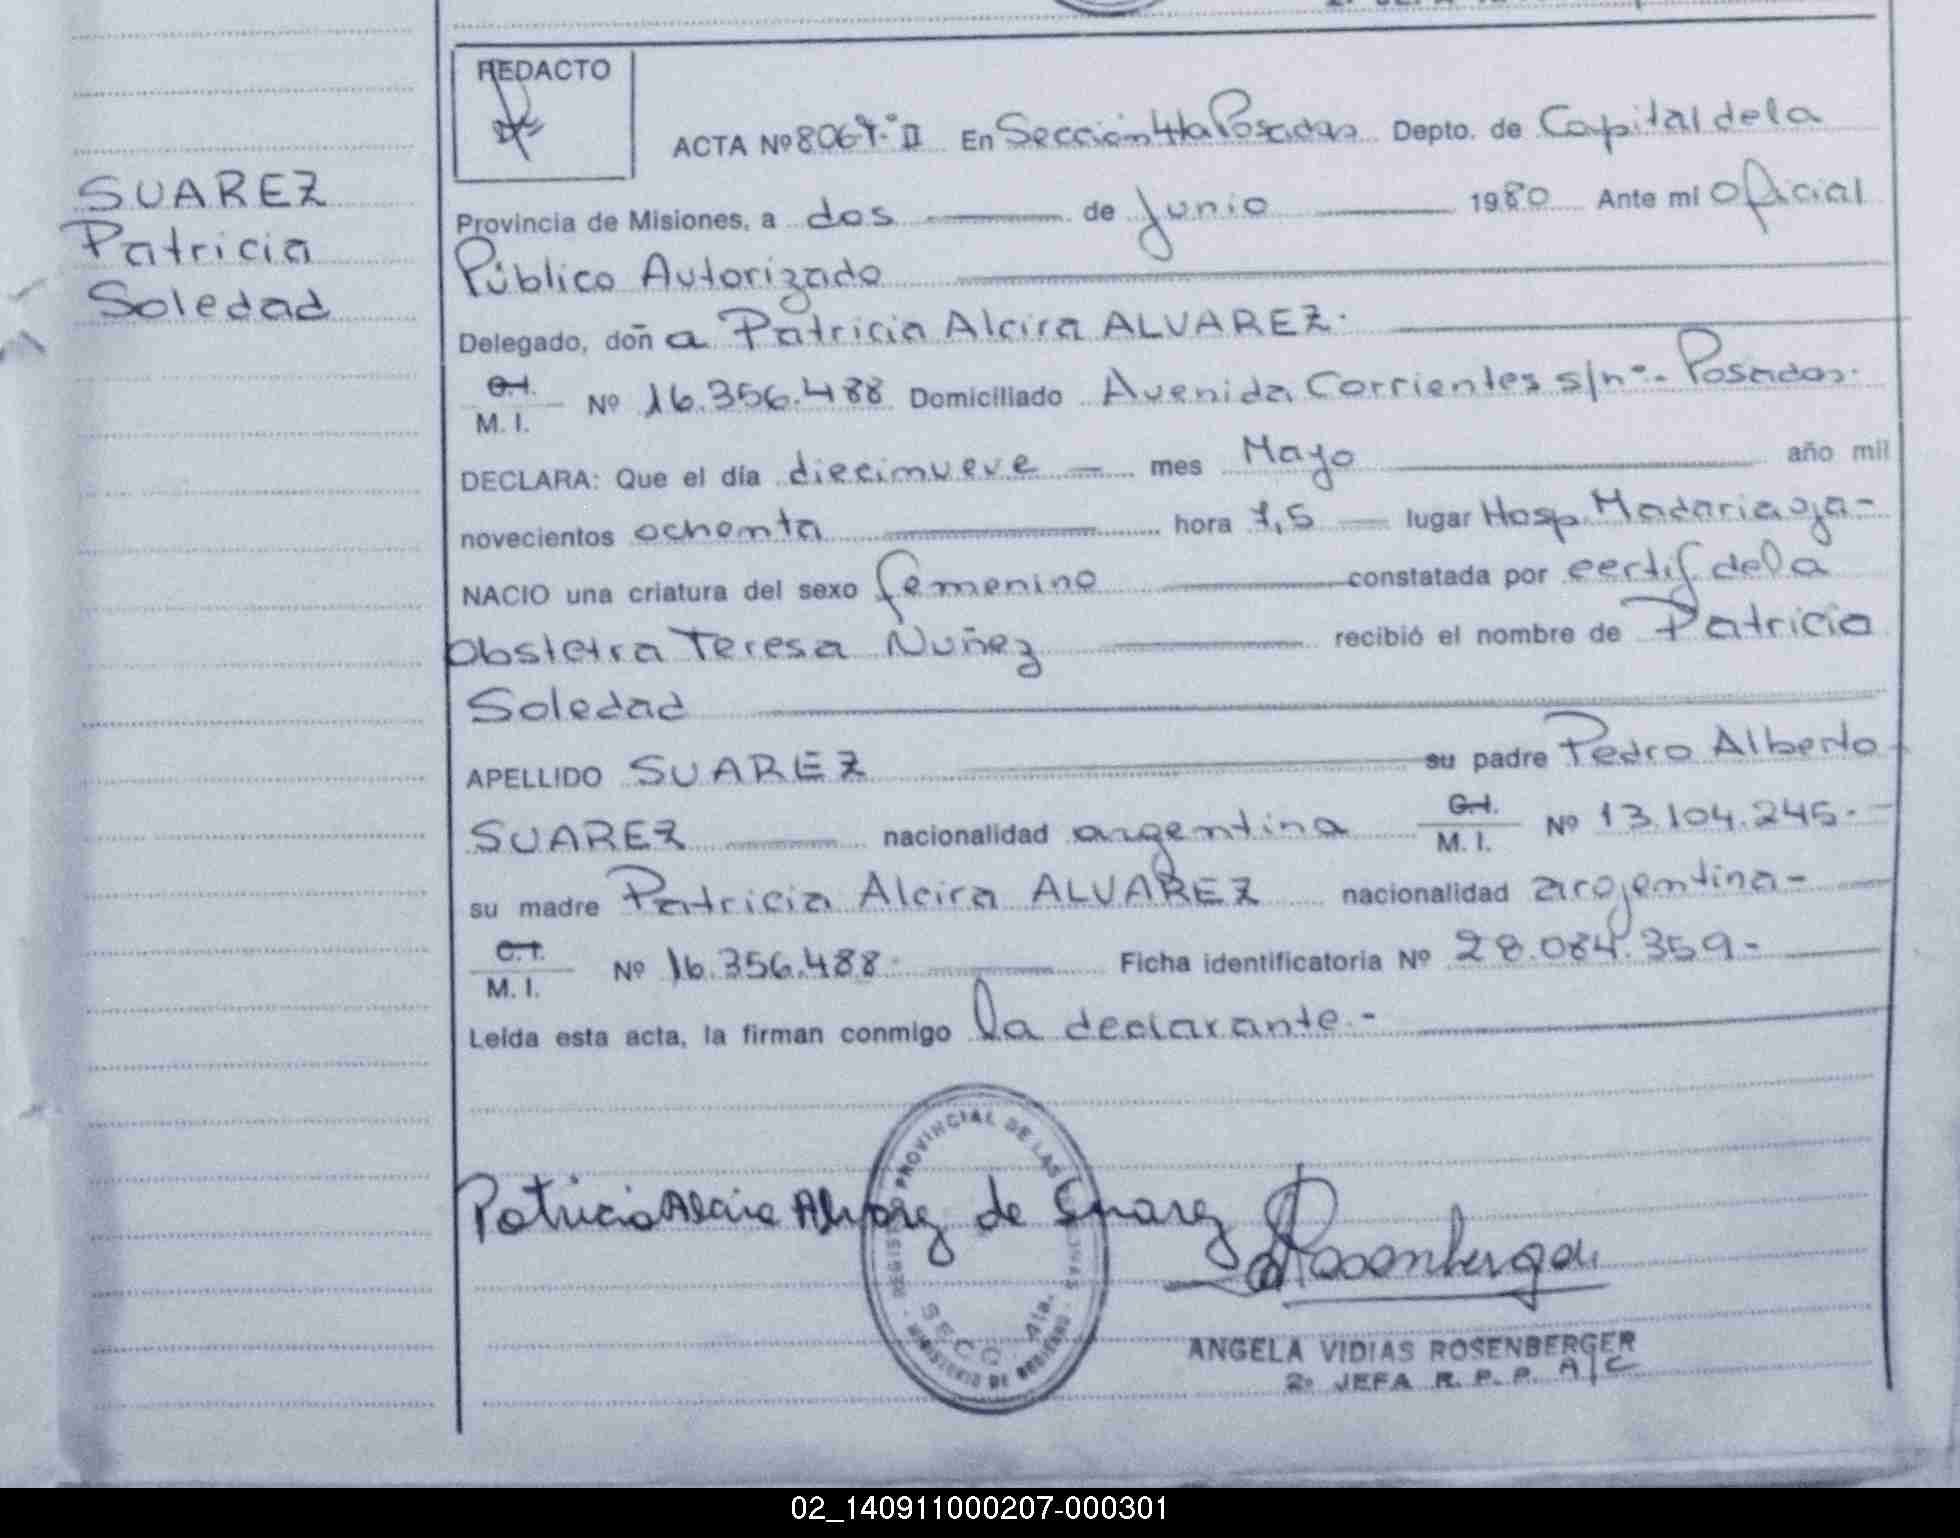 REDACTO
ACTA Nº 8067-II En Sección 4ta Posadas Depto. de Capital de la
SUAREZ
Patricia
Soledad
Provincia de Misiones, a dos de Junio 1980 Ante mi Oficial
Público Autorizado
Delegado, doña Patricia Alcira ALVAREZ.
C.I.
M. I. Nº 16.356.488 Domiciliado Avenida Corrientes s/nº- Posadas.
DECLARA: Que el día diecinueve mes Mayo año mil
novecientos ochenta hora 7,5 lugar Hosp. Madariaga-
NACIO una criatura del sexo femenino constatada por certif de la
Obstetra Teresa Nuñez recibió el nombre de Patricia
Soledad
APELLIDO SUAREZ su padre Pedro Alberto
SUAREZ nacionalidad argentina C.I. M. I. Nº 13.104.245.-
su madre Patricia Alcira ALVAREZ nacionalidad argentina-
C.I.
M. I. Nº 16.356.488. Ficha identificatoria Nº 28.084.359-
Leída esta acta, la firman conmigo la declarante.-
REGISTRO PROVINCIAL DE LAS PERSONAS
SECC. 4ta.
MINISTERIO DE GOBIERNO
Patricia Alcira Alvarez de Suarez
ANGELA VIDIAS ROSENBERGER
2º JEFA R. P. P. A/C
02_140911000207-000301